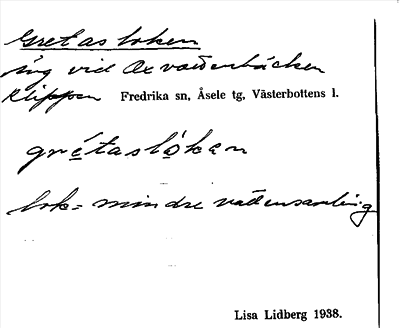 Gretasloken
äng vid Oxvattenbäcken
Klippen Fredrika sn, Åsele tg, Västerbottens l.
gré̱taslo̱kan
lok = mindre vattensamling
Lisa Lidberg 1938.